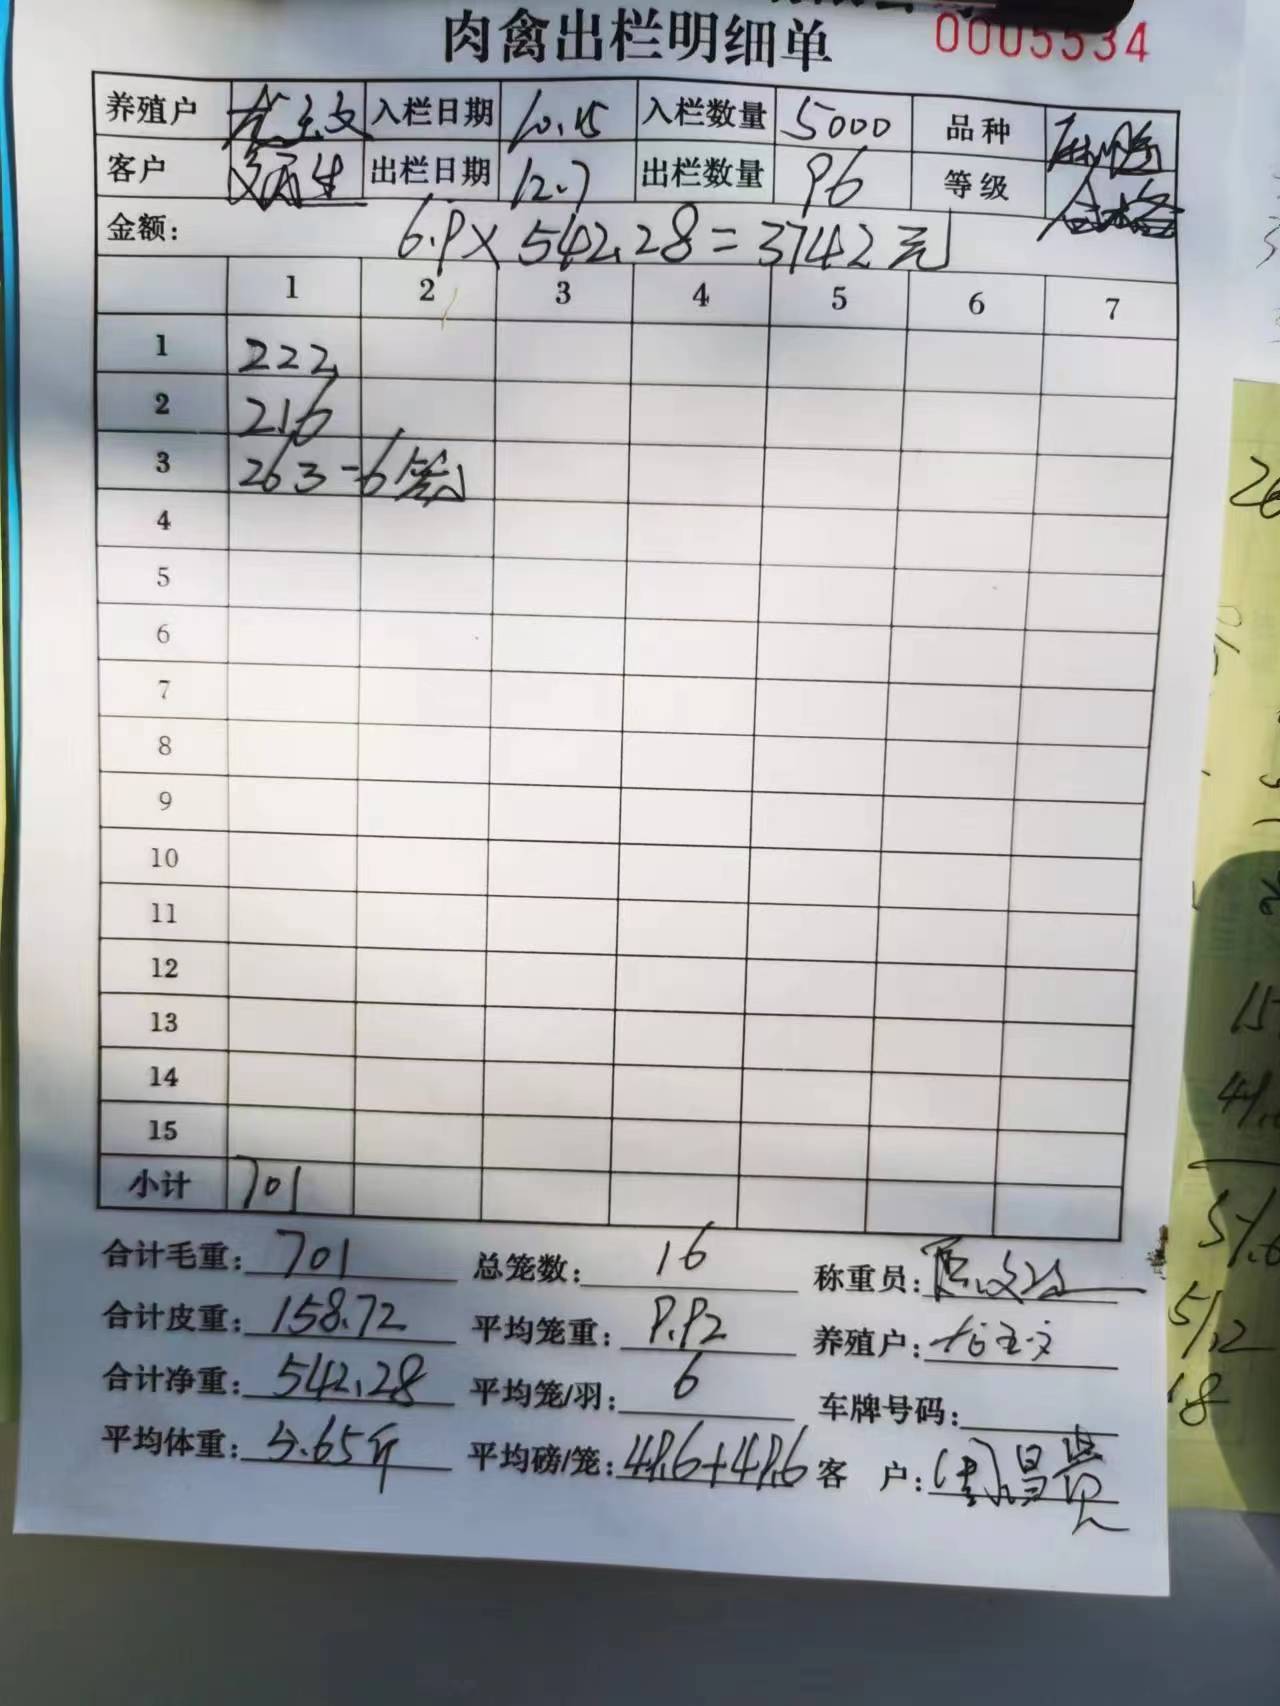 肉禽出栏明细单 0005534
养殖户 入栏日期 10.15 入栏数量 5000 品种 麻鸭
客户 出栏日期 12.7 出栏数量 96 等级 合格
金额: 6.9×542.28=3742元
1 2 3 4 5 6 7
1 222
2 216
3 263-6
4
5
6
7
8
9
10
11
12
13
14
15
小计 701
合计毛重: 701 总笼数: 16 称重员:
合计皮重: 158.72 平均笼重: 9.92 养殖户:
合计净重: 542.28 平均笼/羽: 6 车牌号码:
平均体重: 5.65斤 平均磅/笼: 49.6+49.6 客 户: 周昌贵